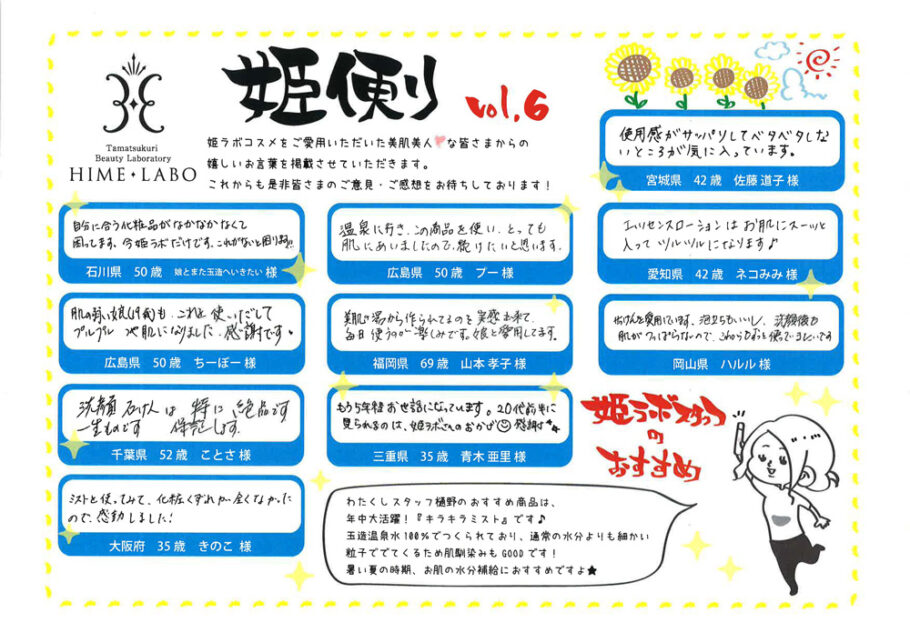 Tamatsukuri
Beauty Laboratory
HIME・LABO
姫便り vol.6
姫ラボコスメをご愛用いただいた美肌美人な皆さまからの
嬉しいお言葉を掲載させていただきます。
これからも是非皆さまのご意見・ご感想をお待ちしております！
使用感がサッパリしてベタベタしな
いところが気に入っています。
宮城県 42歳 佐藤 道子 様
自分に合う化粧品がなかなかなくて
困ってます。今姫ラボだけです。これがないと困ります!!
石川県 50歳 娘とまた玉造へいきたい 様
温泉に行き、この商品を使い、とっても
肌にあいましたので、続けたいと思います。
広島県 50歳 プー 様
エッセンスローションはお肌にスーッと
入ってツルツルになります♪
愛知県 42歳 ネコみみ 様
肌の弱い娘(19歳)も、これを使いだして
プルプル 肌になりました。感謝です。
広島県 50歳 ちーぼー 様
美肌の湯から作られてるのを実感出来て、
毎日使うのが楽しみです。娘と愛用してます。
福岡県 69歳 山本 孝子 様
せっけんを愛用しています。泡立ちもいいし、洗顔後も
肌がつっぱらないので、これからもずっと使っていきたいです
岡山県 ハルル 様
洗顔石けんは 特に 絶品です
一生ものです 保証します。
千葉県 52歳 ことさ 様
もう5年程お世話になっています。20代前半に
見られるのは、姫ラボさんのおかげ 感謝
三重県 35歳 青木 亜里 様
ミストを使ってみて、化粧くずれが全くなかった
ので、感動しました!
大阪府 35歳 きのこ 様
姫ラボスタッフ
の
おすすめ
わたくしスタッフ樋野のおすすめ商品は、
年中大活躍！『キラキラミスト』です♪
玉造温泉水100％でつくられており、通常の水分よりも細かい
粒子ででてくるため肌馴染みもGOODです！
暑い夏の時期、お肌の水分補給におすすめですよ★